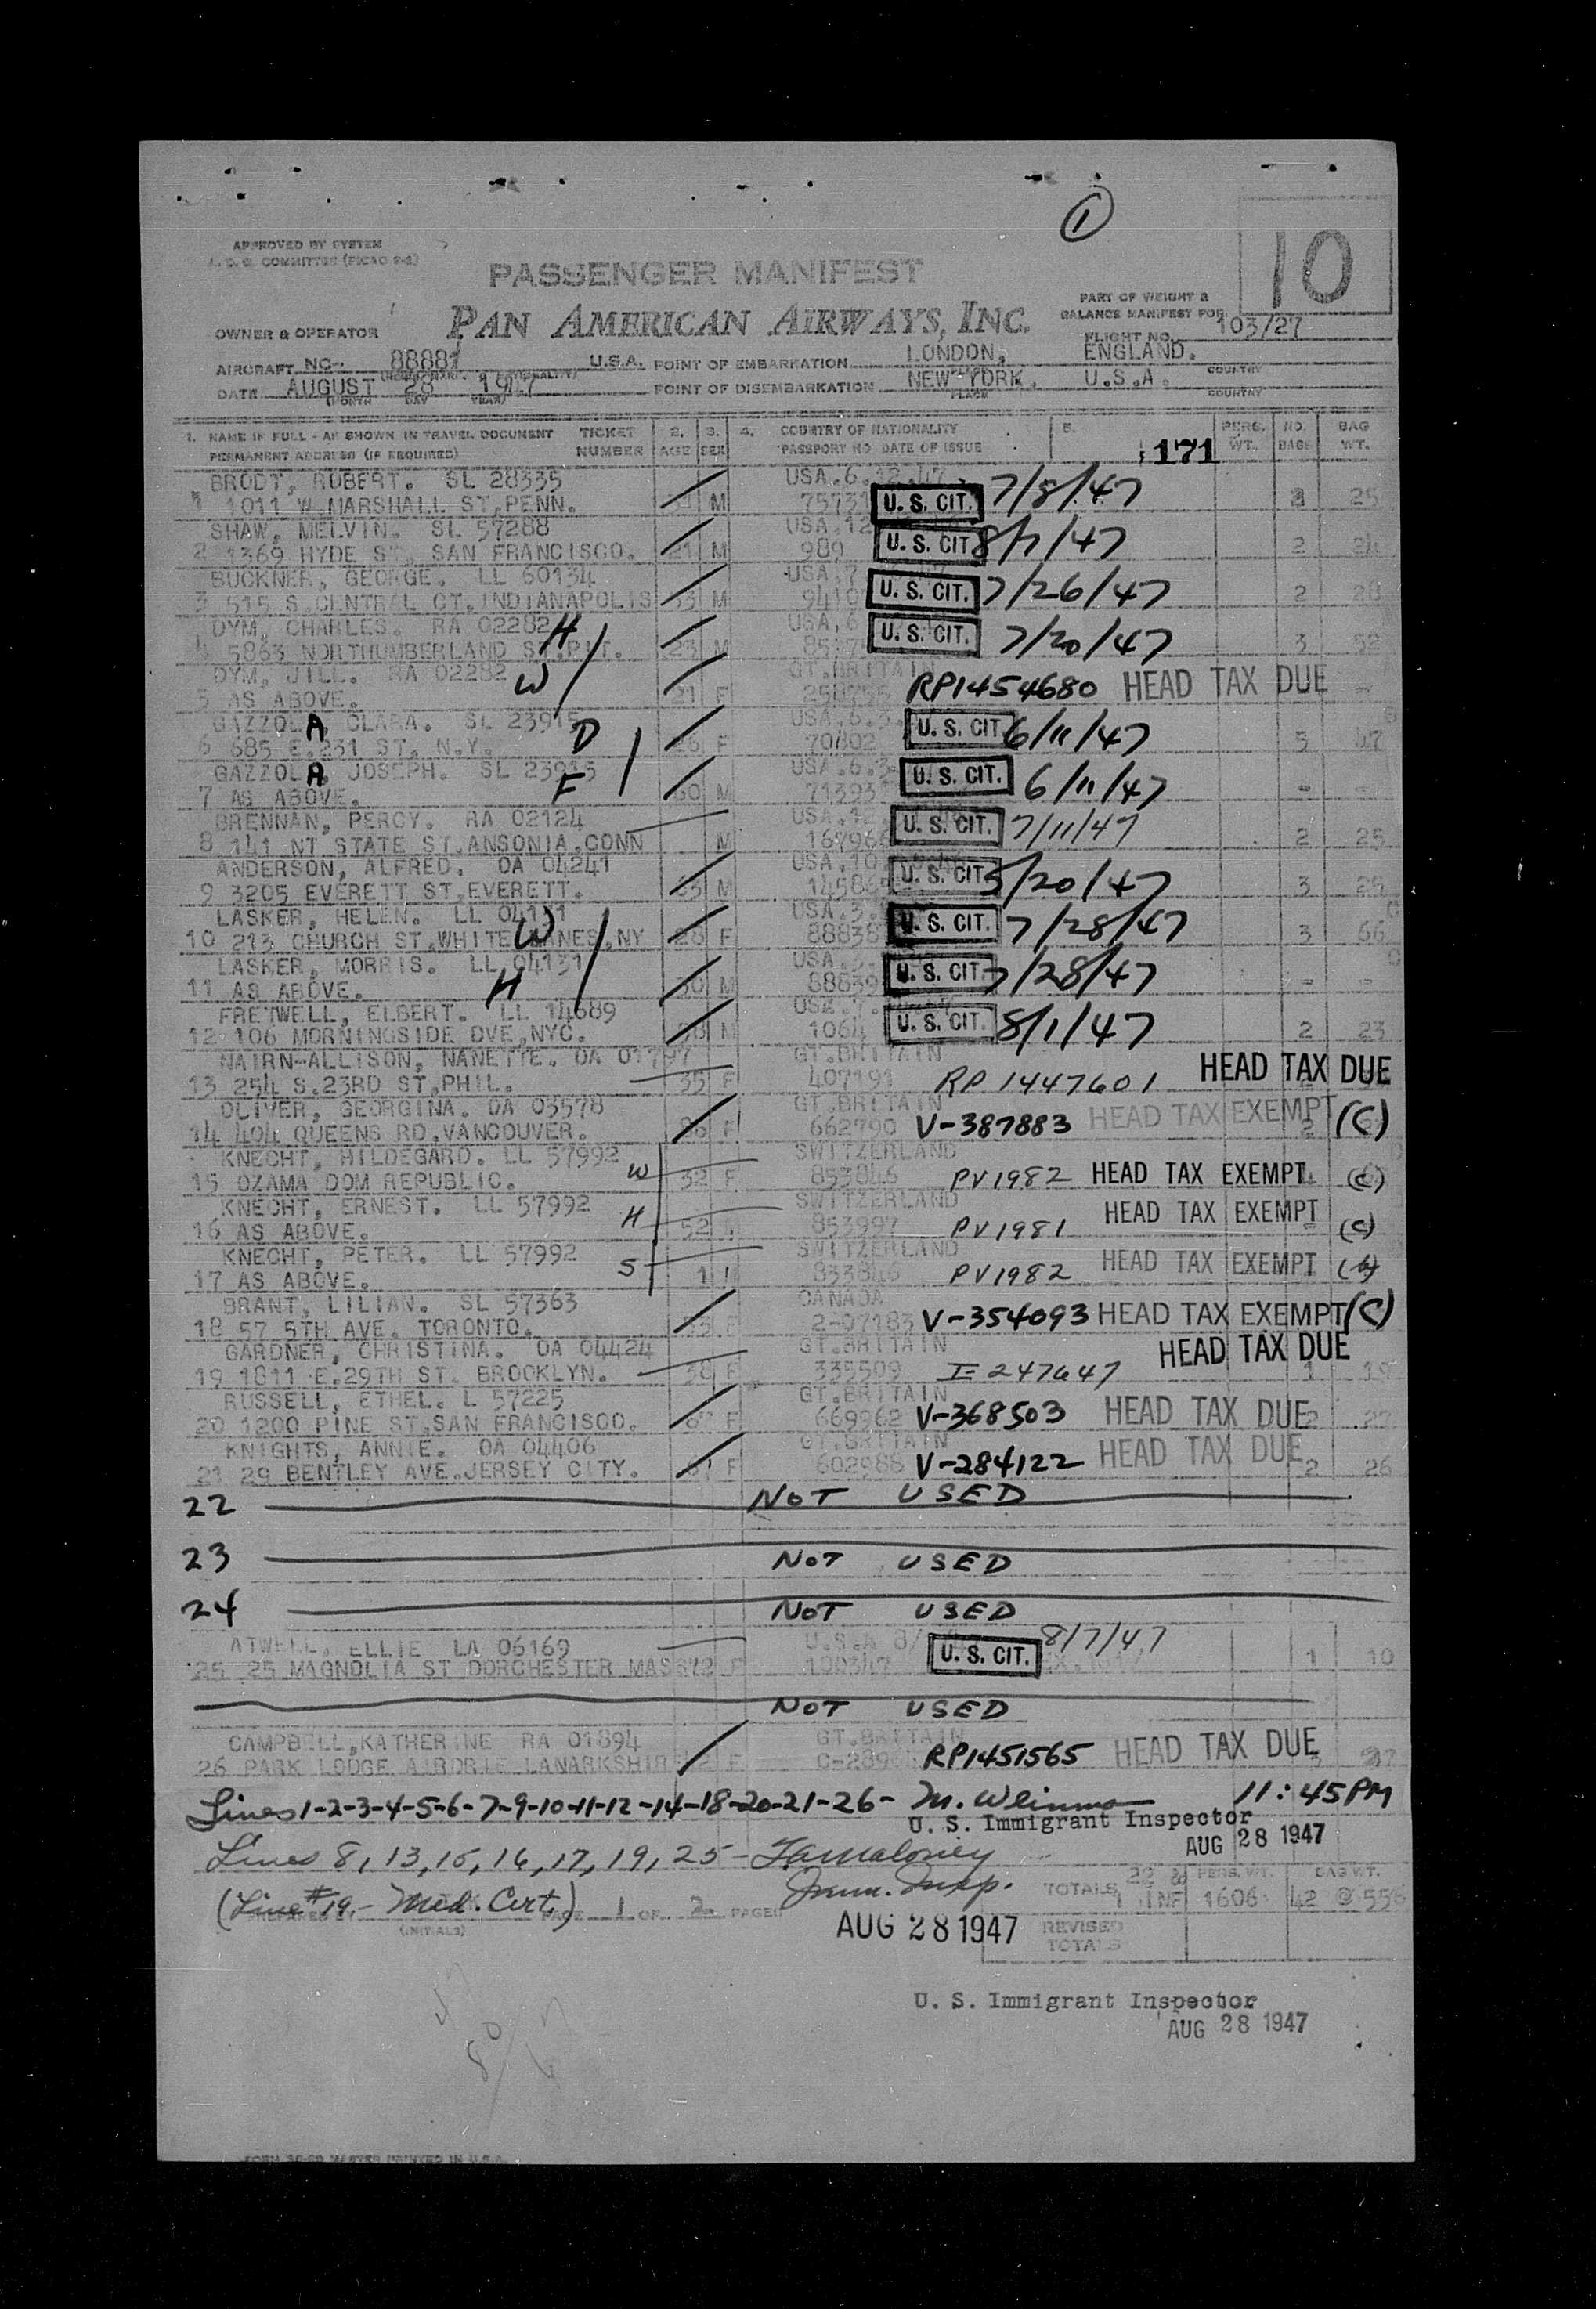 1
10
APPROVED BY SYSTEM
PASSENGER MANIFEST
PAN AMERICAN AIRWAYS, INC.
PART OF WEIGHT &
BALANCE MANIFEST FOR
OWNER & OPERATOR
FLIGHT NO. 103/27
AIRCRAFT NC- 88881 U.S.A. POINT OF EMBARKATION LONDON, ENGLAND. COUNTRY
DATE AUGUST 28 1947 POINT OF DISEMBARKATION NEW YORK. U.S.A. COUNTRY
MONTH DAY YEAR PLACE
1. NAME IN FULL - AS SHOWN IN TRAVEL DOCUMENT TICKET 2. 3. 4. COUNTRY OF NATIONALITY 5. PERS. NO. BAG
PERMANENT ADDRESS (IF REQUIRED) NUMBER AGE SEX PASSPORT NO DATE OF ISSUE 171 WT. BAGS WT.
BRODT, ROBERT. SL 28335 USA.6.12.47
1 1011 W.MARSHALL ST,PENN. M U. S. CIT. 7/8/47 25
SHAW, MELVIN. SL 57288 USA.12
2 1369 HYDE ST, SAN FRANCISCO. 21 M 989 U. S. CIT 8/7/47 2 24
BUCKNER, GEORGE. LL 60134 USA.7
3 515 S.CENTRAL CT.INDIANAPOLIS M 9410 U. S. CIT. 7/26/47 2 28
DYM, CHARLES. RA 02282 H USA.6
4 5863 NORTHUMBERLAND ST.PIT. 23 M U. S. CIT. 7/20/47 3 52
DYM, JILL. RA 02282 W GT.BRITAIN
5 AS ABOVE. 21 F RP1454680 HEAD TAX DUE -
GAZZOLA, CLARA. SL 23915 USA.6.3.
6 685 E.231 ST. N.Y. D 26 F 70802 U. S. CIT 6/11/47 5 47
GAZZOLA, JOSEPH. SL 23915 USA.6.3.
7 AS ABOVE. F 60 M 71393 U. S. CIT. 6/11/47 - -
BRENNAN, PERCY. RA 02124 USA.12.
8 141 NT STATE ST,ANSONIA,CONN M 167966 U. S. CIT. 7/11/47 2 25
ANDERSON, ALFRED. OA 04241 USA.10.
9 3205 EVERETT ST,EVERETT. 63 M 14586 U. S. CIT. 5/20/47 3 25
LASKER, HELEN. LL 04131 USA.3.
10 213 CHURCH ST,WHITE PLANES,NY W 28 F 88838 U. S. CIT. 7/28/47 3 66
LASKER, MORRIS. LL 04131 USA.3.
11 AS ABOVE. H 30 M 88839 U. S. CIT. 7/28/47 - -
FRETWELL, ELBERT. LL 14689 USA.7.
12 106 MORNINGSIDE DVE,NYC. M 1064 U. S. CIT. 8/1/47 2 23
NAIRN-ALLISON, NANETTE. OA 01797 GT.BRITAIN
13 254 S.23RD ST,PHIL. 35 F 407191 RP 1447601 HEAD TAX DUE
OLIVER, GEORGINA. OA 03578 GT.BRITAIN
14 494 QUEENS RD,VANCOUVER. F 662790 V-387883 HEAD TAX EXEMPT (C) 2
KNECHT, HILDEGARD. LL 57992 SWITZERLAND
15 OZAMA DOM REPUBLIC. W 32 F 853846 PV1982 HEAD TAX EXEMPT (C)
KNECHT, ERNEST. LL 57992 SWITZERLAND
16 AS ABOVE. H 52 853997 PV1981 HEAD TAX EXEMPT (C)
KNECHT, PETER. LL 57992 SWITZERLAND
17 AS ABOVE. S 1 853846 PV1982 HEAD TAX EXEMPT
BRANT, LILIAN. SL 57363 CANADA
18 57 5TH AVE. TORONTO. F 2-07183 V-354093 HEAD TAX EXEMPT (C)
GARDNER, CHRISTINA. OA 04424 GT.BRITAIN
19 1811 E.29TH ST. BROOKLYN. 38 F 335509 I-247647 HEAD TAX DUE 1 19
RUSSELL, ETHEL. L 57225 GT.BRITAIN
20 1200 PINE ST,SAN FRANCISCO. F 669962 V-368503 HEAD TAX DUE 2
KNIGHTS, ANNIE. OA 04406 GT.BRITAIN
21 29 BENTLEY AVE.JERSEY CITY. F 602988 V-284122 HEAD TAX DUE 2 26
22 NOT USED
23 NOT USED
24 NOT USED
ATWELL, ELLIE LA 06169 U.S.A 8/7/47
25 25 MAGNOLIA ST DORCHESTER MASS 72 F 100347 U. S. CIT. 1 10
NOT USED
CAMPBELL,KATHERINE RA 01894 GT.BRITAIN
26 PARK LODGE AIRDRIE LANARKSHIR F RP1451565 HEAD TAX DUE
Lines 1-2-3-4-5-6-7-9-10-11-12-14-18-20-21-26- M. Weinman 11:45PM
U. S. Immigrant Inspector
AUG 28 1947
Lines 8, 13, 15, 16, 17, 19, 25 -
Imm. Insp.
(Line #19 - Med. Cert.) PAGE 1 OF 2 PAGES
(INITIALS)
AUG 28 1947
TOTALS 22 & 1 INF PERS. WT. 1606 42 @ BAG WT.
REVISED
TOTALS
U. S. Immigrant Inspector
AUG 28 1947